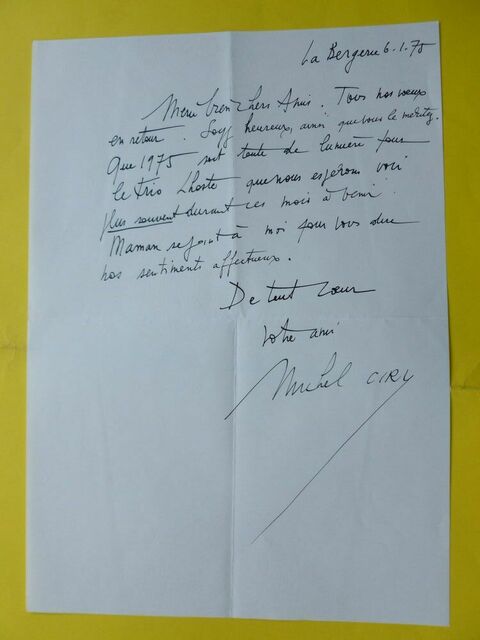 La Bergerie 6.1.75
Merci bien chers Amis. Tous nos vœux
en retour. Soyez heureux, ainsi que vous le méritez.
Que 1975 soit toute de lumière pour
le trio Lhoste que nous espérons voir
plus souvent durant ces mois à venir.
Maman se joint à moi pour vous dire
nos sentiments affectueux.
De tout cœur
votre ami
Michel CIRY